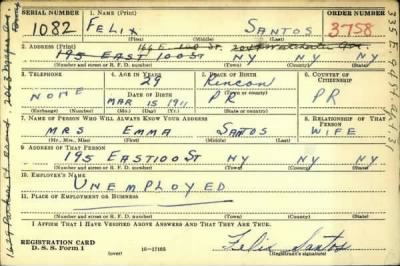 SERIAL NUMBER 1. NAME (Print) ORDER NUMBER
1082 FELIX SANTOS 3758
(First) (Middle) (Last)
2. ADDRESS (Print)
195 EAST 100 ST NY NY
(Number and street or R. F. D. number) (Town) (County) (State)
3. TELEPHONE 4. AGE IN YEARS 5. PLACE OF BIRTH 6. COUNTRY OF CITIZENSHIP
29 Rincon
NONE DATE OF BIRTH (Town or county)
MAR 15 1911 PR PR
(Exchange) (Number) (Mo.) (Day) (Yr.) (State or country)
7. NAME OF PERSON WHO WILL ALWAYS KNOW YOUR ADDRESS 8. RELATIONSHIP OF THAT PERSON
MRS EMMA SANTOS WIFE
(Mr., Mrs., Miss) (First) (Middle) (Last)
9. ADDRESS OF THAT PERSON
195 EAST 100 ST NY NY
(Number and street or R. F. D. number) (Town) (County) (State)
10. EMPLOYER'S NAME
UNEMPLOYED
11. PLACE OF EMPLOYMENT OR BUSINESS
(Number and street or R. F. D. number) (Town) (County) (State)
I AFFIRM THAT I HAVE VERIFIED ABOVE ANSWERS AND THAT THEY ARE TRUE.
REGISTRATION CARD
D. S. S. Form 1 16-17105 Felix Santos
(Registrant's signature)